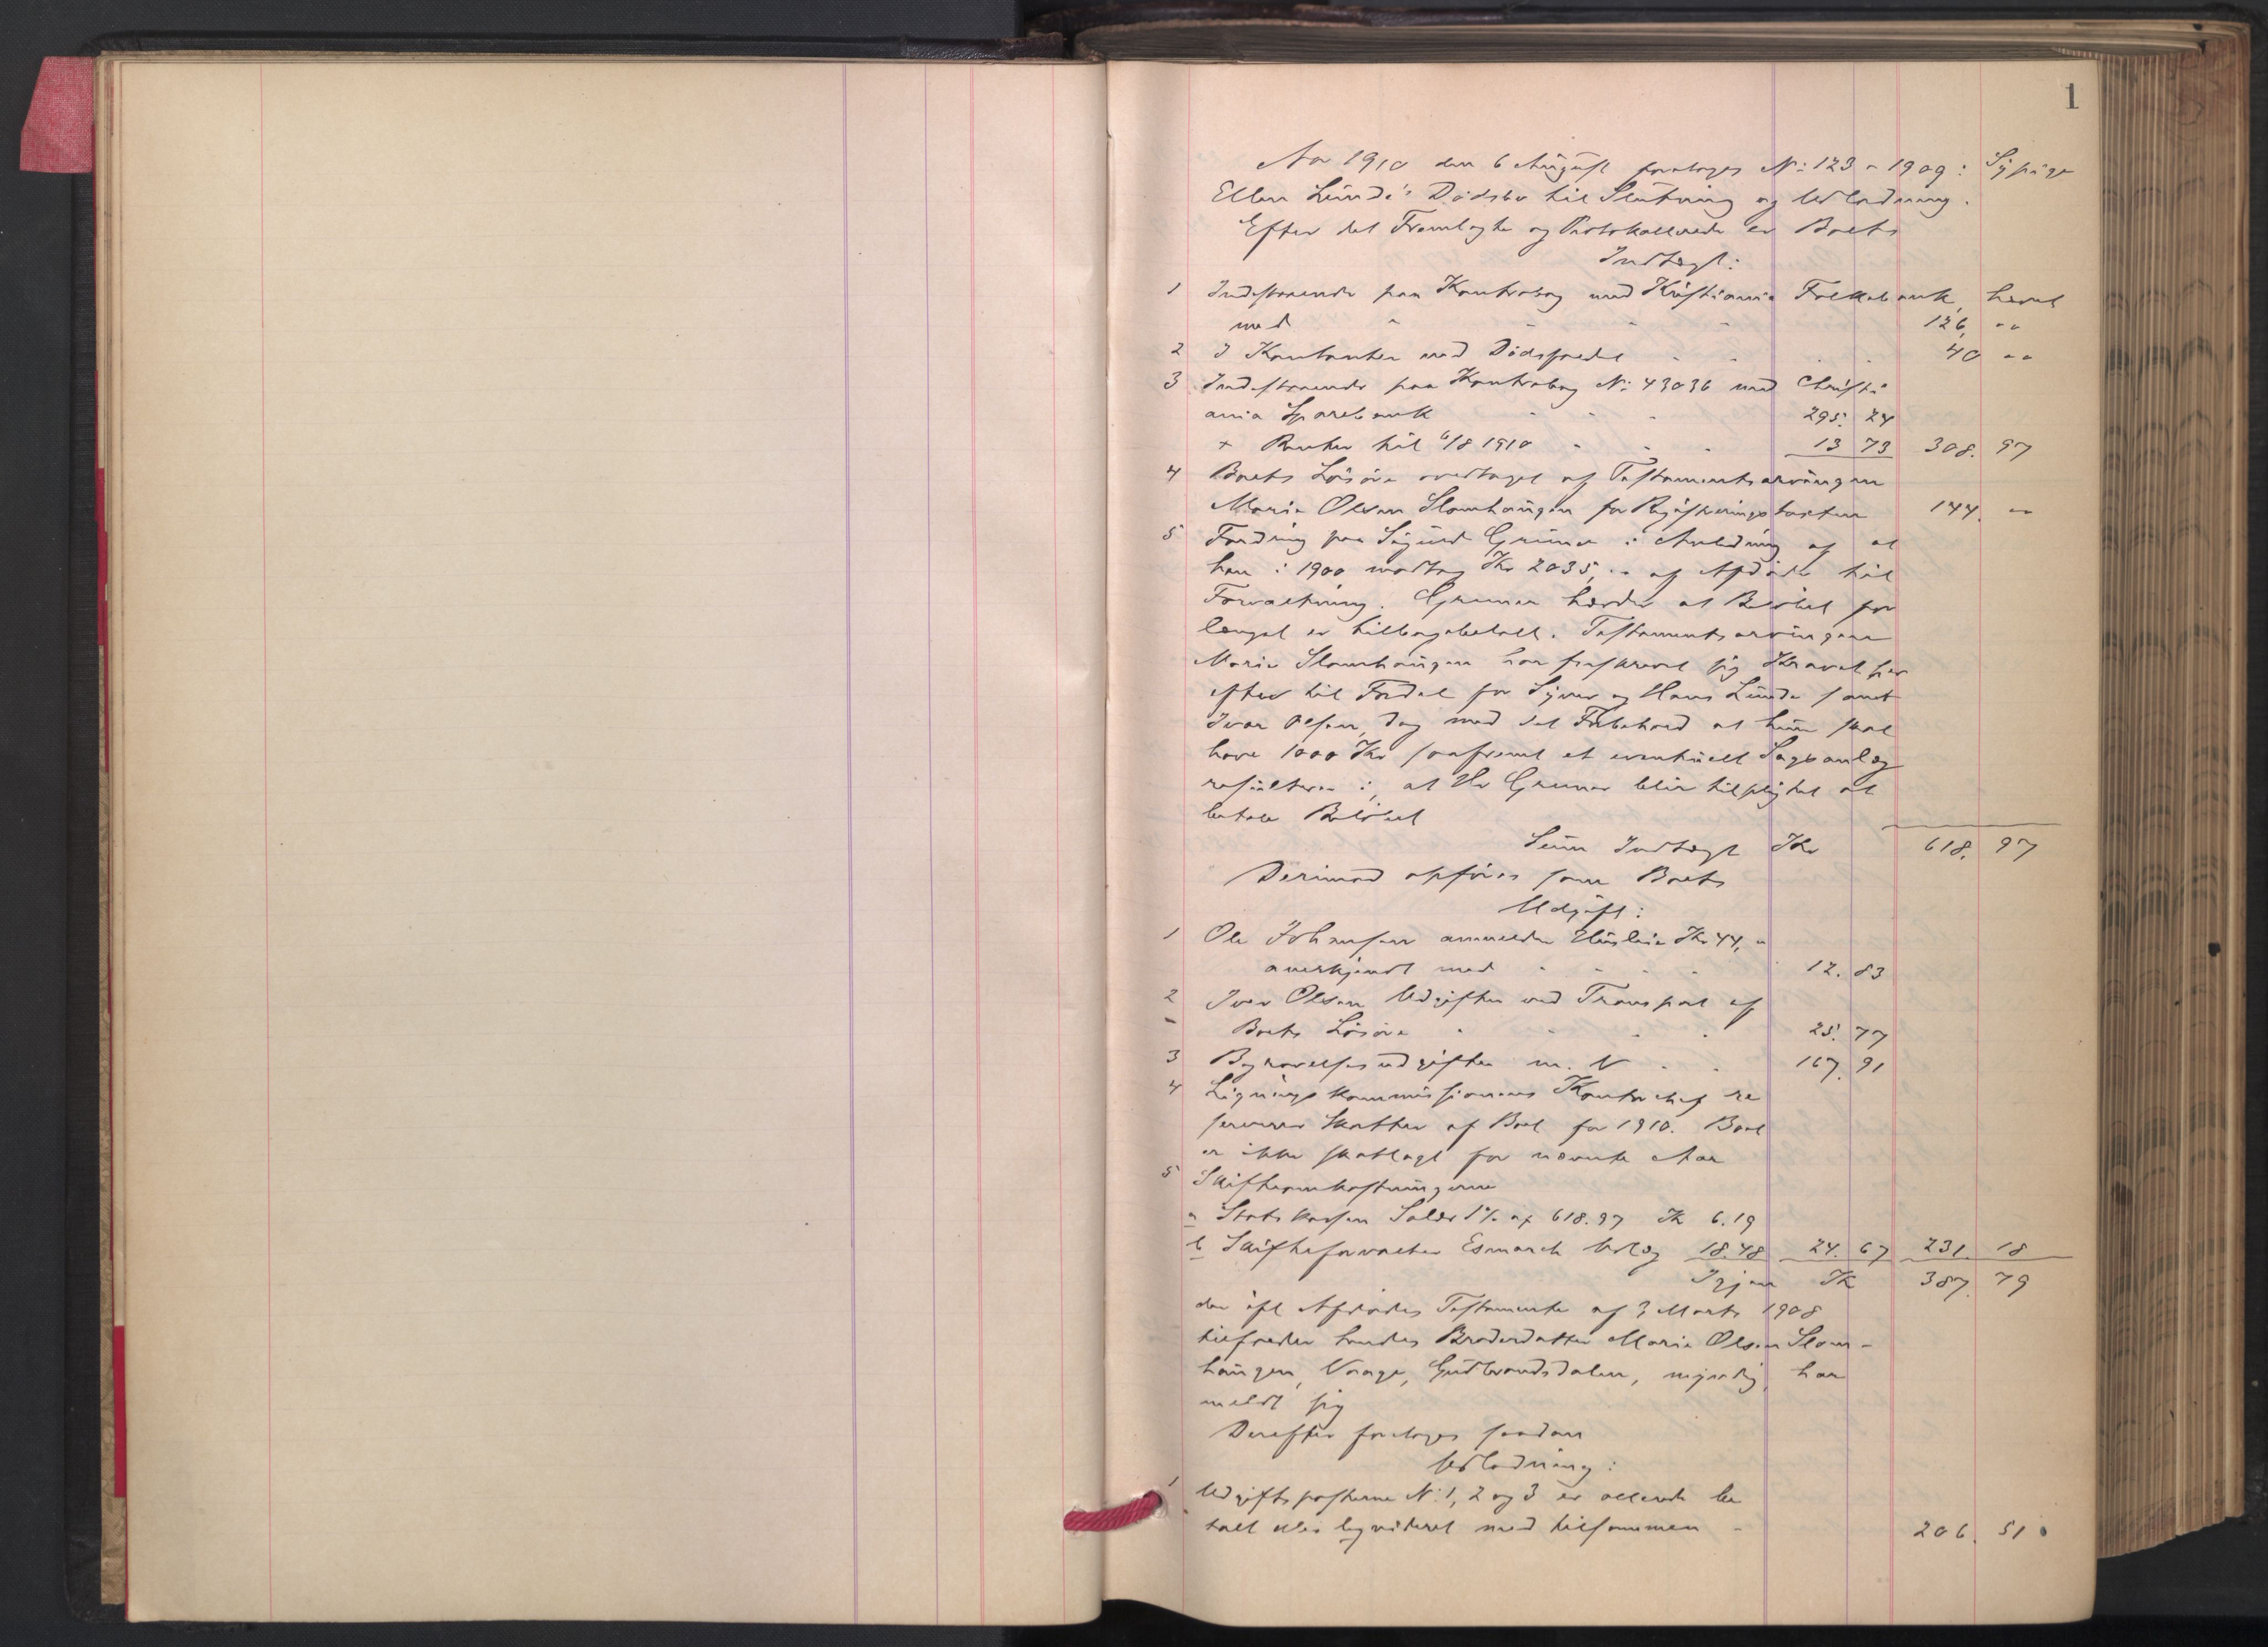 1
Aar 1910 den 6 August foretoges No: 123 - 1909: Sypige
Ellen Lunde's Dødsbo til Slutning og Udlodning.
Efter det Fremlagte og Protokollerede er Boets
Indtægt:
1 Indestaaende paa Kontrabog med Kristiania Folkebank, hævet
med - - - - 126, "
2 I Kontanter ved Dødsfaldet - - - - 40 "
3 Indestaaende paa Kontrabog No: 43036 med Christi
ania Sparebank - - - 295. 24
+ Renter til 6/8 1910 - - - 13 73 308. 97
4 Boets Løsøre overtaget af Testamentsarvingen
Marie Olsen Slomhaugen for Registreringstaxten 144. "
5 Fordring paa Sigurd Gruner i Anledning af at
han i 1900 modtog Kr 2035, " af Afdøde til
Forvaltning. Gruner hævder at Beløbet for
længst er tilbagebetalt. Testamentsarvingen
Marie Slomhaugen har fraskrevet sig Kravet her
efter til Fordel for Syver og Hans Lunde samt
Ivar Olsen, dog med det Forbehold at hun skal
have 1000 Kr saafremt et eventuelt Sagsanlæg
resulterer i, at Hr Gruner blir tilpligtet at
betale Beløbet
Sum Indtægt Kr 618. 97
Derimod opføres som Boets
Udgift:
1 Ole Johansen anmeldte Husleie Kr 44, "
anerkjendt med - - - - 12. 83
2 Iver Olsen Udgifter ved Transport af
- Boets Løsøre - - - - 25. 77
3 Begravelsesudgifter m. V - - 167. 91
4 Ligningskommissionens Kontorchef re
serverer Skatter af Boet for 1910. Boet
er ikke skatlagt for nævnte Aar
5 Skifteomkostningerne
a Statskassen Salær 1% af 618.97 Kr 6.19
b Skifteforvalter Esmarch Udlæg 18.48 24. 67 231. 18
Igjen Kr 387. 79
der ifl Afdødes Testamente af 3 Marts 1908
tilfalder hendes Broderdatter Marie Olsen Slom-
haugen, Vaage, Gudbrandsdalen, myndig, har
meldt sig
Derefter foretoges saadan
Udlodning:
1 Udgiftsposterne No: 1, 2 og 3 er allerede be
talt eller lignideret med tilsammen - 206. 51